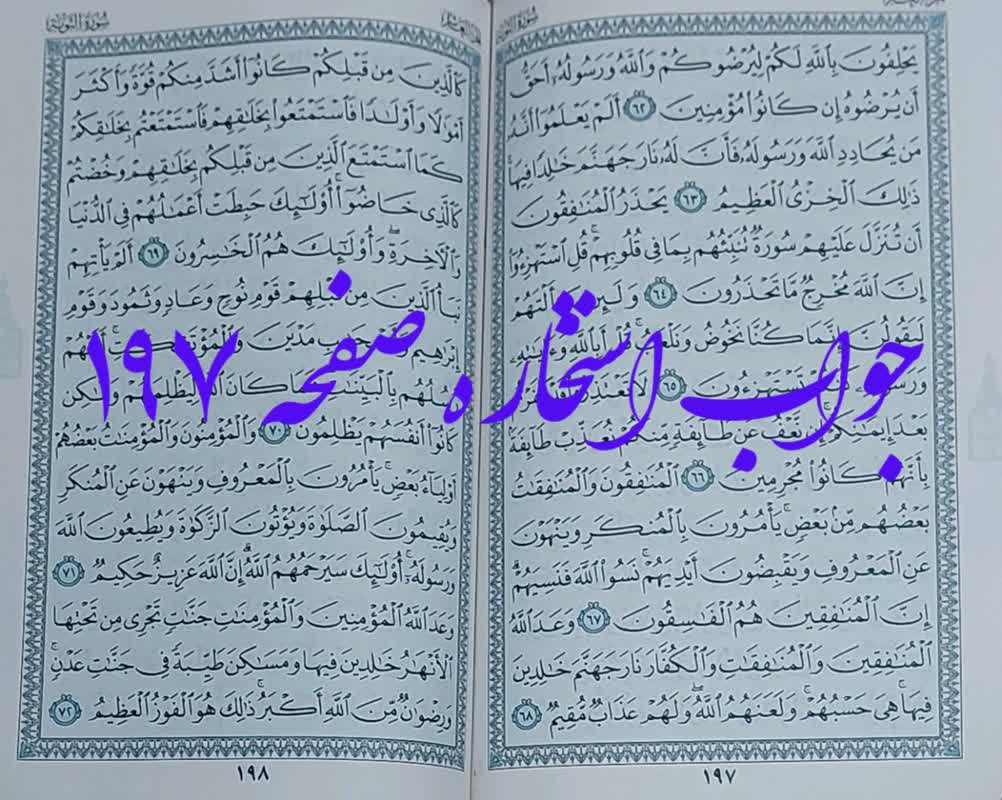 سُورَةُ التَّوْبَةِ
يَحْلِفُونَ بِاللَّهِ لَكُمْ لِيُرْضُوكُمْ وَاللَّهُ وَرَسُولُهُ أَحَقُّ
أَن يُرْضُوهُ إِن كَانُوا مُؤْمِنِينَ ٦٢ أَلَمْ يَعْلَمُوا أَنَّهُ
مَن يُحَادِدِ اللَّهَ وَرَسُولَهُ فَأَنَّ لَهُ نَارَ جَهَنَّمَ خَالِدًا فِيهَا
ذَٰلِكَ الْخِزْيُ الْعَظِيمُ ٦٣ يَحْذَرُ الْمُنَافِقُونَ
أَن تُنَزَّلَ عَلَيْهِمْ سُورَةٌ تُنَبِّئُهُم بِمَا فِي قُلُوبِهِمْ ۚ قُلِ اسْتَهْزِءُوا
إِنَّ اللَّهَ مُخْرِجٌ مَّا تَحْذَرُونَ ٦٤ وَلَئِن سَأَلْتَهُمْ
لَيَقُولُنَّ إِنَّمَا كُنَّا نَخُوضُ وَنَلْعَبُ ۚ قُلْ أَبِاللَّهِ وَءَايَاتِهِ
وَرَسُولِهِ كُنتُمْ تَسْتَهْزِءُونَ ٦٥ لَا تَعْتَذِرُوا قَدْ كَفَرْتُم
بَعْدَ إِيمَانِكُمْ ۚ إِن نَّعْفُ عَن طَائِفَةٍ مِّنكُمْ نُعَذِّبْ طَائِفَةً
بِأَنَّهُمْ كَانُوا مُجْرِمِينَ ٦٦ الْمُنَافِقُونَ وَالْمُنَافِقَاتُ
بَعْضُهُم مِّن بَعْضٍ ۚ يَأْمُرُونَ بِالْمُنكَرِ وَيَنْهَوْنَ
عَنِ الْمَعْرُوفِ وَيَقْبِضُونَ أَيْدِيَهُمْ ۚ نَسُوا اللَّهَ فَنَسِيَهُمْ ۗ
إِنَّ الْمُنَافِقِينَ هُمُ الْفَاسِقُونَ ٦٧ وَعَدَ اللَّهُ
الْمُنَافِقِينَ وَالْمُنَافِقَاتِ وَالْكُفَّارَ نَارَ جَهَنَّمَ خَالِدِينَ
فِيهَا ۚ هِيَ حَسْبُهُمْ ۚ وَلَعَنَهُمُ اللَّهُ ۖ وَلَهُمْ عَذَابٌ مُّقِيمٌ ٦٨
١٩٧
سُورَةُ التَّوْبَةِ
كَالَّذِينَ مِن قَبْلِكُمْ كَانُوا أَشَدَّ مِنكُمْ قُوَّةً وَأَكْثَرَ
أَمْوَالًا وَأَوْلَادًا فَاسْتَمْتَعُوا بِخَلَاقِهِمْ فَاسْتَمْتَعْتُم بِخَلَاقِكُمْ
كَمَا اسْتَمْتَعَ الَّذِينَ مِن قَبْلِكُم بِخَلَاقِهِمْ وَخُضْتُمْ
كَالَّذِي خَاضُوا ۚ أُولَٰئِكَ حَبِطَتْ أَعْمَالُهُمْ فِي الدُّنْيَا
وَالْآخِرَةِ ۖ وَأُولَٰئِكَ هُمُ الْخَاسِرُونَ ٦٩ أَلَمْ يَأْتِهِمْ
نَبَأُ الَّذِينَ مِن قَبْلِهِمْ قَوْمِ نُوحٍ وَعَادٍ وَثَمُودَ وَقَوْمِ
إِبْرَاهِيمَ وَأَصْحَابِ مَدْيَنَ وَالْمُؤْتَفِكَاتِ ۚ أَتَتْهُمْ
رُسُلُهُم بِالْبَيِّنَاتِ ۖ فَمَا كَانَ اللَّهُ لِيَظْلِمَهُمْ وَلَٰكِن
كَانُوا أَنفُسَهُمْ يَظْلِمُونَ ٧٠ وَالْمُؤْمِنُونَ وَالْمُؤْمِنَاتُ بَعْضُهُمْ
أَوْلِيَاءُ بَعْضٍ ۚ يَأْمُرُونَ بِالْمَعْرُوفِ وَيَنْهَوْنَ عَنِ الْمُنكَرِ
وَيُقِيمُونَ الصَّلَاةَ وَيُؤْتُونَ الزَّكَاةَ وَيُطِيعُونَ اللَّهَ
وَرَسُولَهُ ۚ أُولَٰئِكَ سَيَرْحَمُهُمُ اللَّهُ ۗ إِنَّ اللَّهَ عَزِيزٌ حَكِيمٌ ٧١
وَعَدَ اللَّهُ الْمُؤْمِنِينَ وَالْمُؤْمِنَاتِ جَنَّاتٍ تَجْرِي مِن تَحْتِهَا
الْأَنْهَارُ خَالِدِينَ فِيهَا وَمَسَاكِنَ طَيِّبَةً فِي جَنَّاتِ عَدْنٍ ۚ
وَرِضْوَانٌ مِّنَ اللَّهِ أَكْبَرُ ۚ ذَٰلِكَ هُوَ الْفَوْزُ الْعَظِيمُ ٧٢
١٩٨
جواب استخاره صفحه ۱۹۷